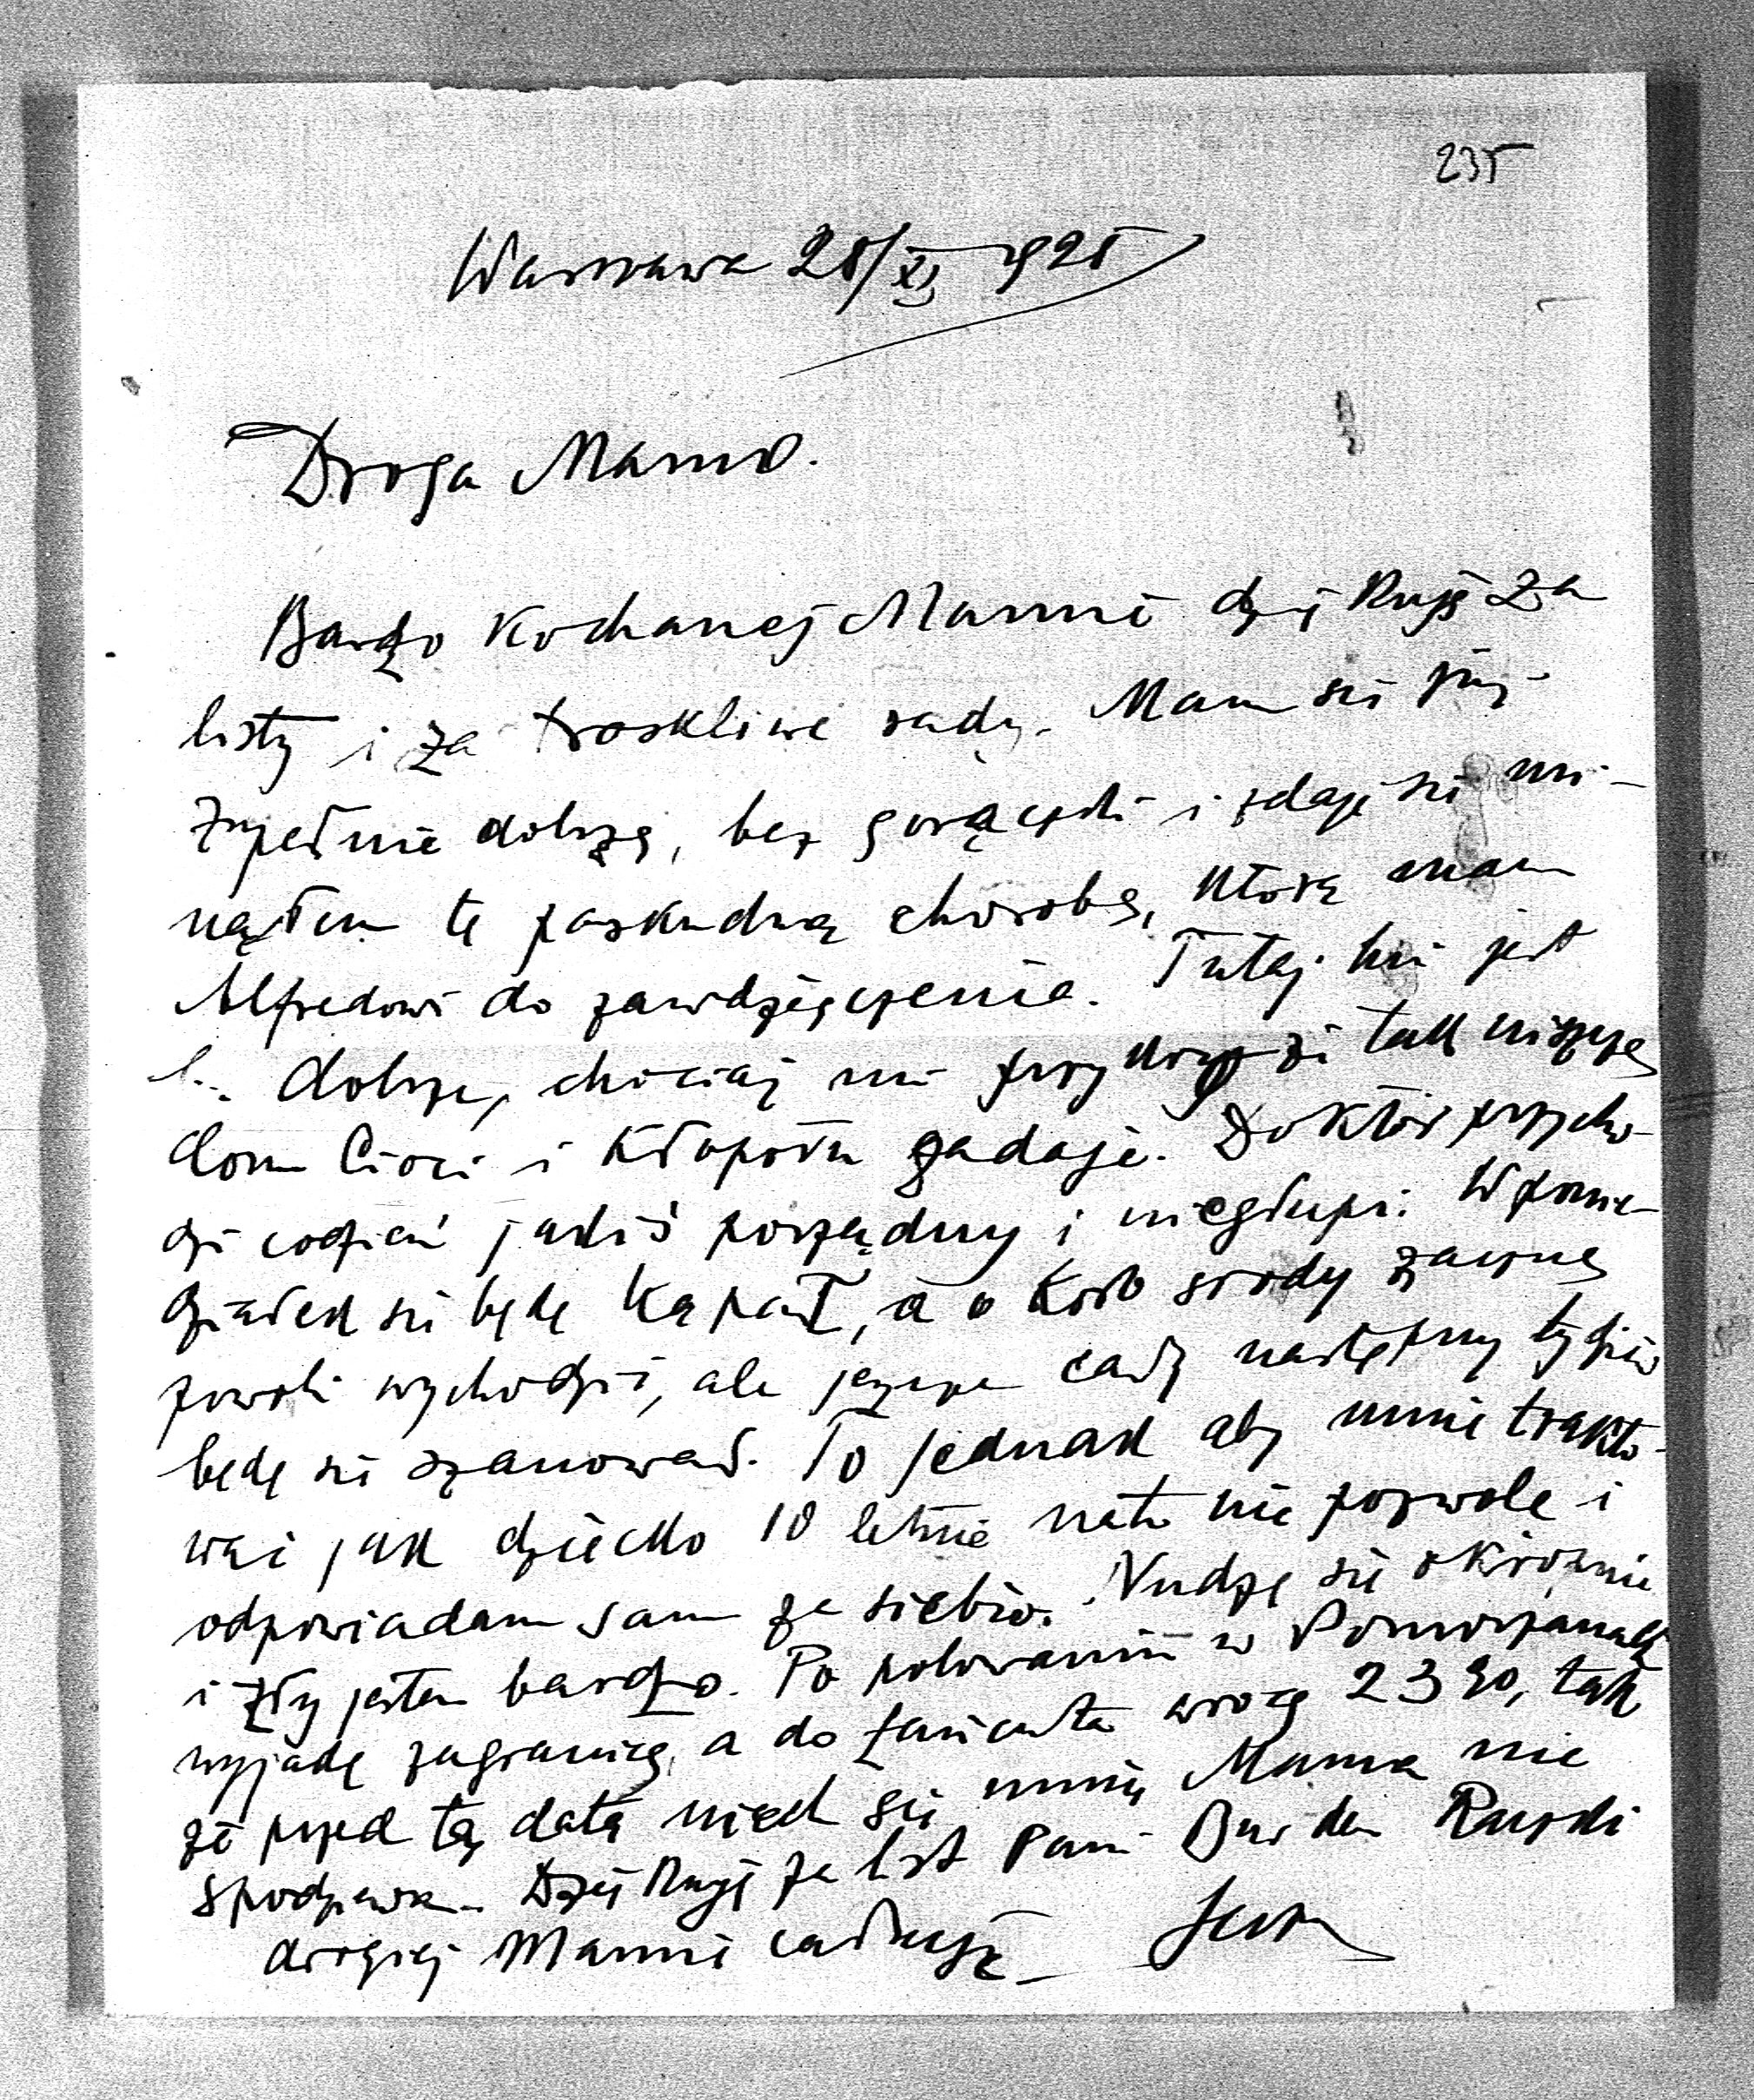 235
Warszawa 28/XI 1925
Droga Mamo.
Bardzo Kochanej Mamie dziękuję za
listy i za troskliwe rady. Mam się już
zupełnie dobrze, bez gorączki i zdaje się mi-
nąłem tę paskudną chorobę, którą mam
Alfredowi do zawdzięczenia. Tutaj mi jest
b. dobrze, chociaż mi przykro że tak niszczę
dom Cioci i kłopotu zadaję. Doktór przycho-
dzi codzień jakiś porządny i niegłupi. W ponie-
działek się będę kąpał, a około środy zacznę
powoli wychodzić, ale jeszcze cały następny tydzień
będę się szanował. To jednak aby mnie trakto-
wać jak dziecko 10 letnie na to nie pozwolę i
odpowiadam sam za siebie. Nudzę się okropnie
i zły jestem bardzo. Po polowaniu w Pomorzanach
wyjadę zagranicę, a do Łańcuta wrócę 23 go, tak
że przed tą datą niech się mnie Mama nie
spodziewa. Dziękuję za list Pani Burden Rączki
drogiej Mamie całuję